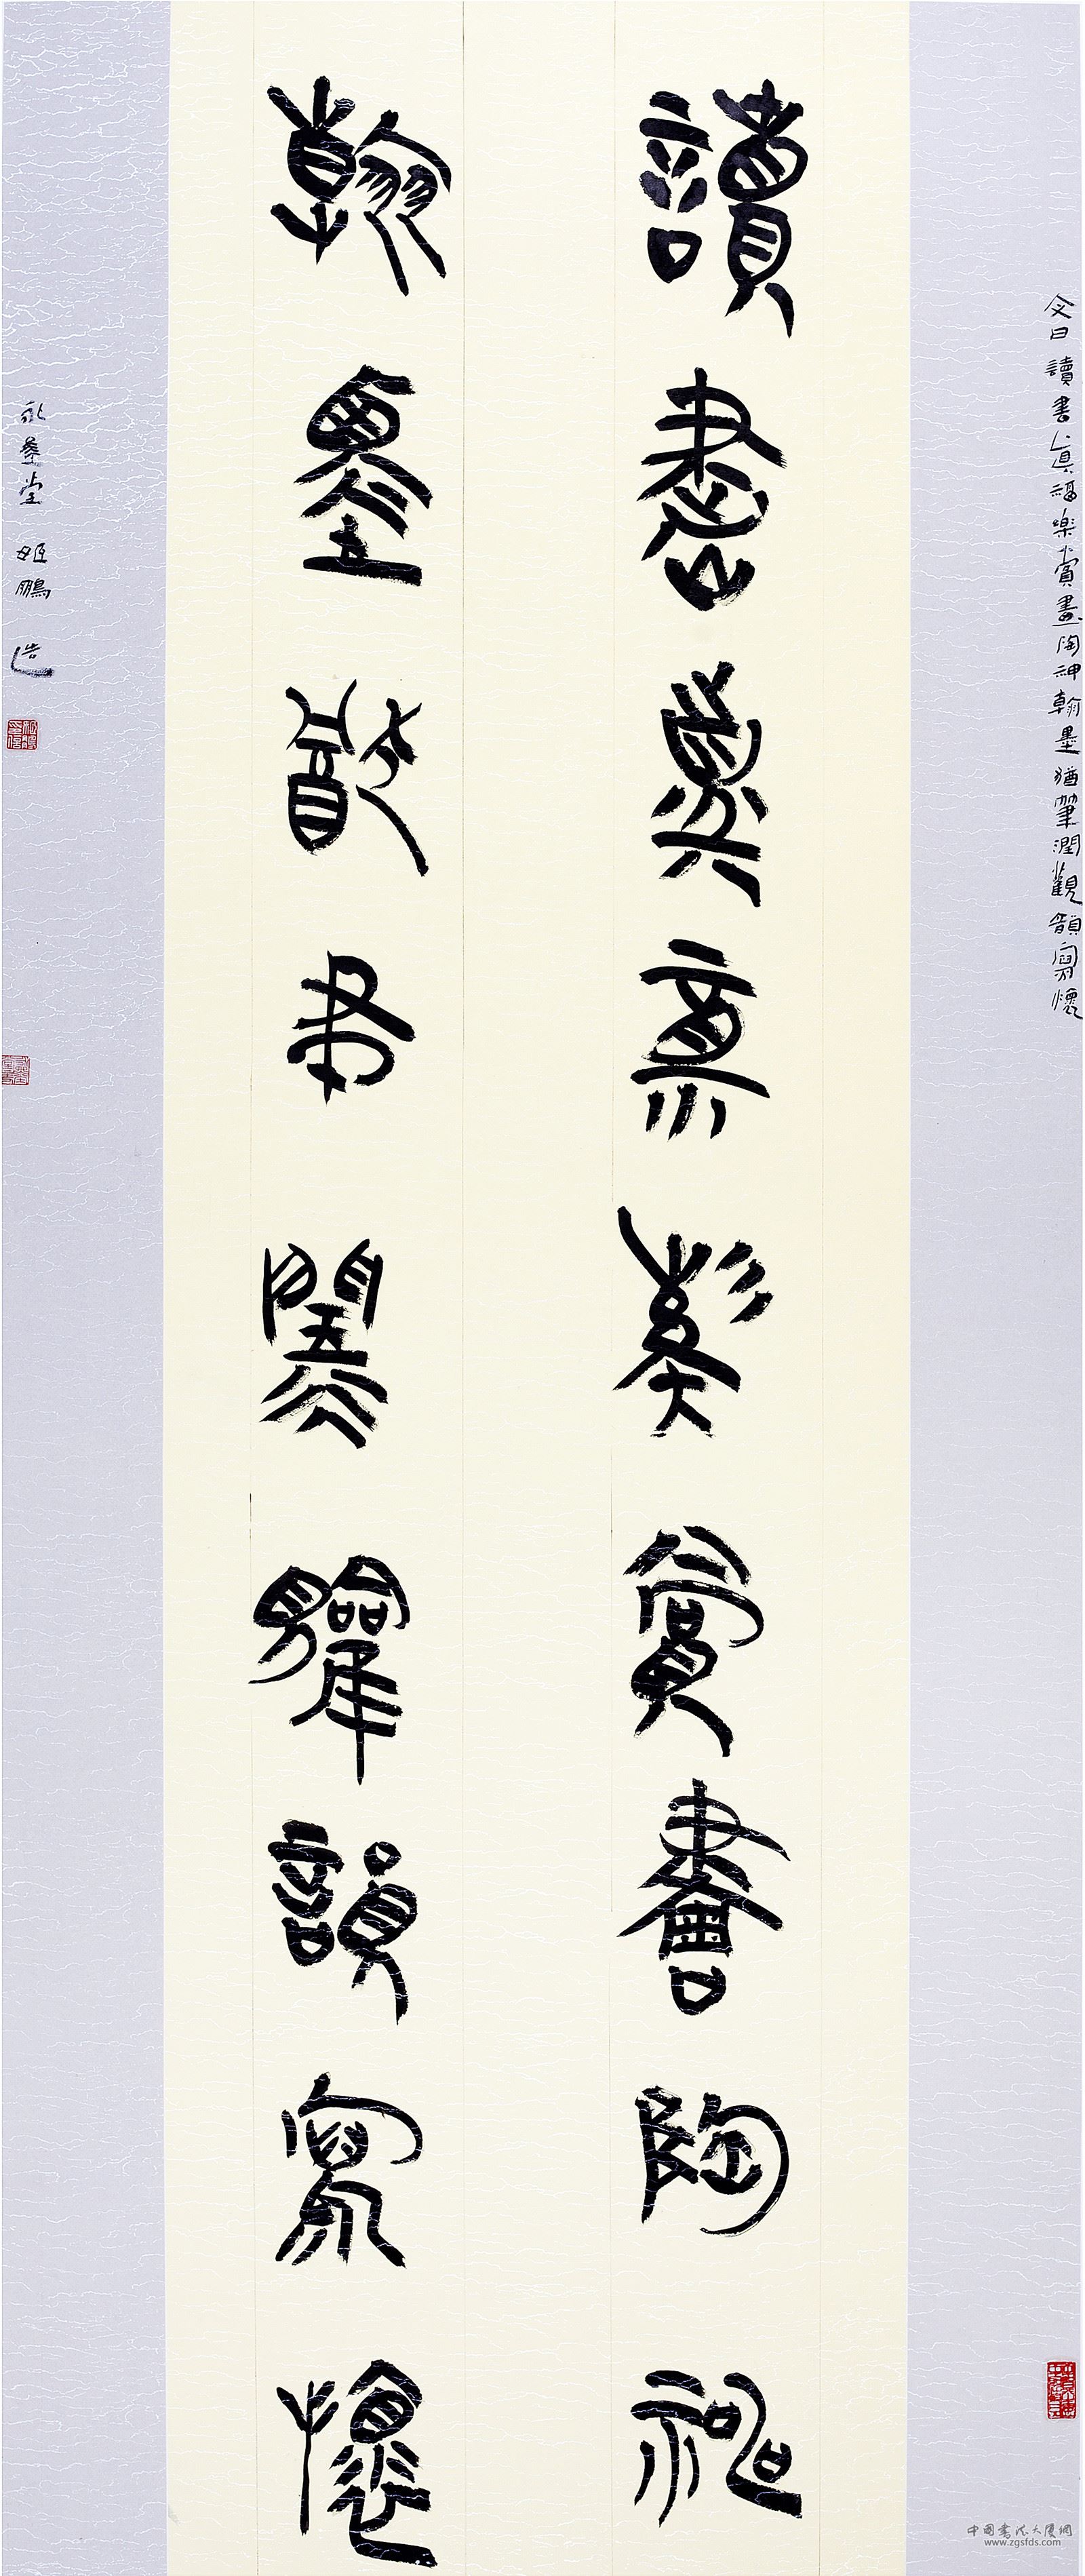 文曰讀書真福樂賞畫陶神翰墨猶筆潤觀韻寫懷
讀書真福樂賞畫陶神
翰墨猶筆潤觀韻寫懷
堂 姬鵬 造
中國書法大廈網
www.zgsfds.com